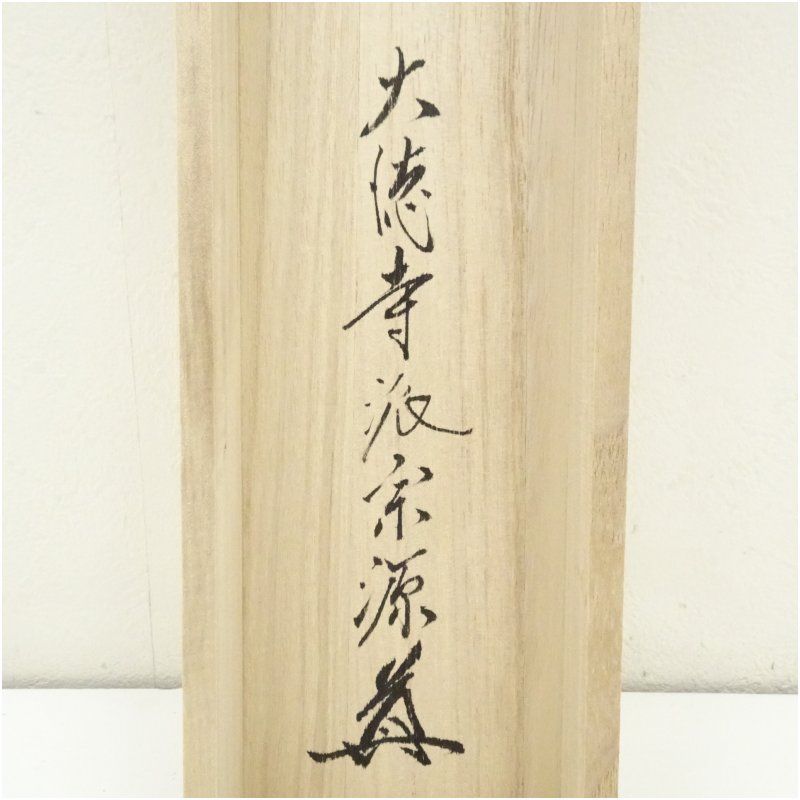 大徳寺派宗源